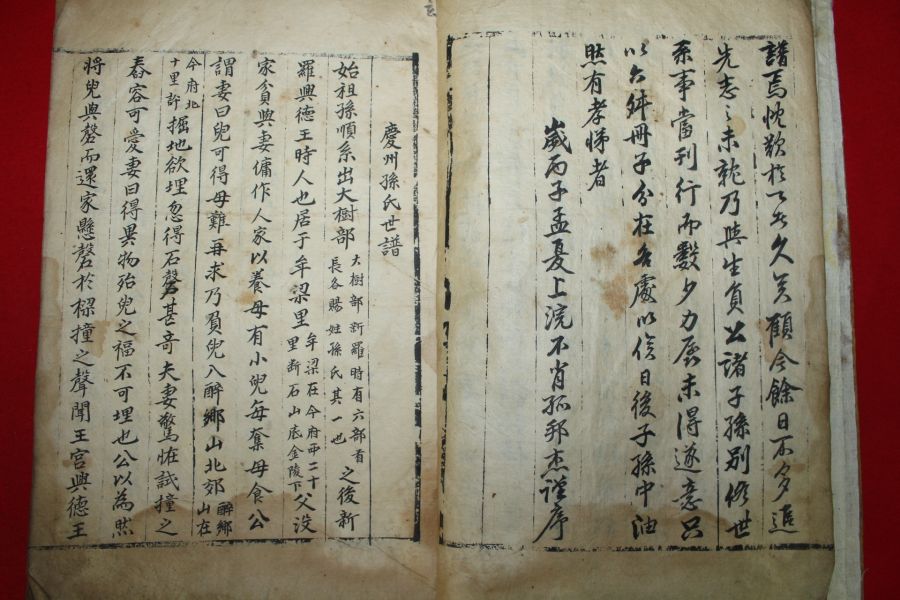 譜焉忱歎於下者久矣顧今餘日不多追
先志之未就乃與生員公諸子孫別修世
系事當刊行而數夕力孱未得遂意只
以六舛冊子分在各處以俟日後子孫中油
然有孝悌者
歲丙子孟夏上浣不肖孤邦杰謹序
慶州孫氏世譜
始祖孫順系出大樹部 大樹部新羅時有六部看長各賜姓孫氏其一也 之後新
羅興德王時人也居于牟梁里 牟梁在今府西二十里断石山底金陵下 父没
家貧與妻傭作人家以養母有小兒每奪母食公
謂妻曰兒可得母難再求乃負兒入醉鄉山北郊 醉鄉山在
今府北十里許 掘地欲埋忽得石磬甚奇夫妻驚恠試撞之
舂容可愛妻曰得異物殆兒之福不可埋也公以為然
將兒與磬而還家懸磬於樑撞之聲聞王宮興德王